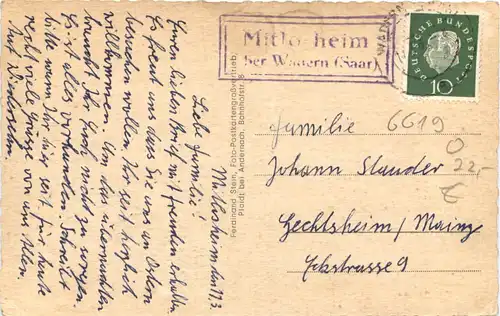 Mitlosheim
ber Wadern (Saar)
DEUTSCHE BUNDESPOST
10
Mitlosheim den 17.3.
Liebe Familie!
Euren lieben Brief mit Freuden erhalten
Es freut uns dass Sie uns an Ostern
besuchen wollen. Ihr seit herzlich
willkommen. Um das übernachten
braucht Ihr Euch nicht zu sorgen.
Es ist alles vorhanden. Schreibt
bitte wann Ihr hier seit. Für heute
recht viele Grüsse von uns Allen.
Auf Wiedersehn.
Ferdinand Stein, Foto-Postkartengroßvertrieb,
Plaidt bei Andernach, Bahnhofstr. 8
Familie
6619
Johann Stauder
22,
Hechtsheim / Mainz
Eckstrasse 9